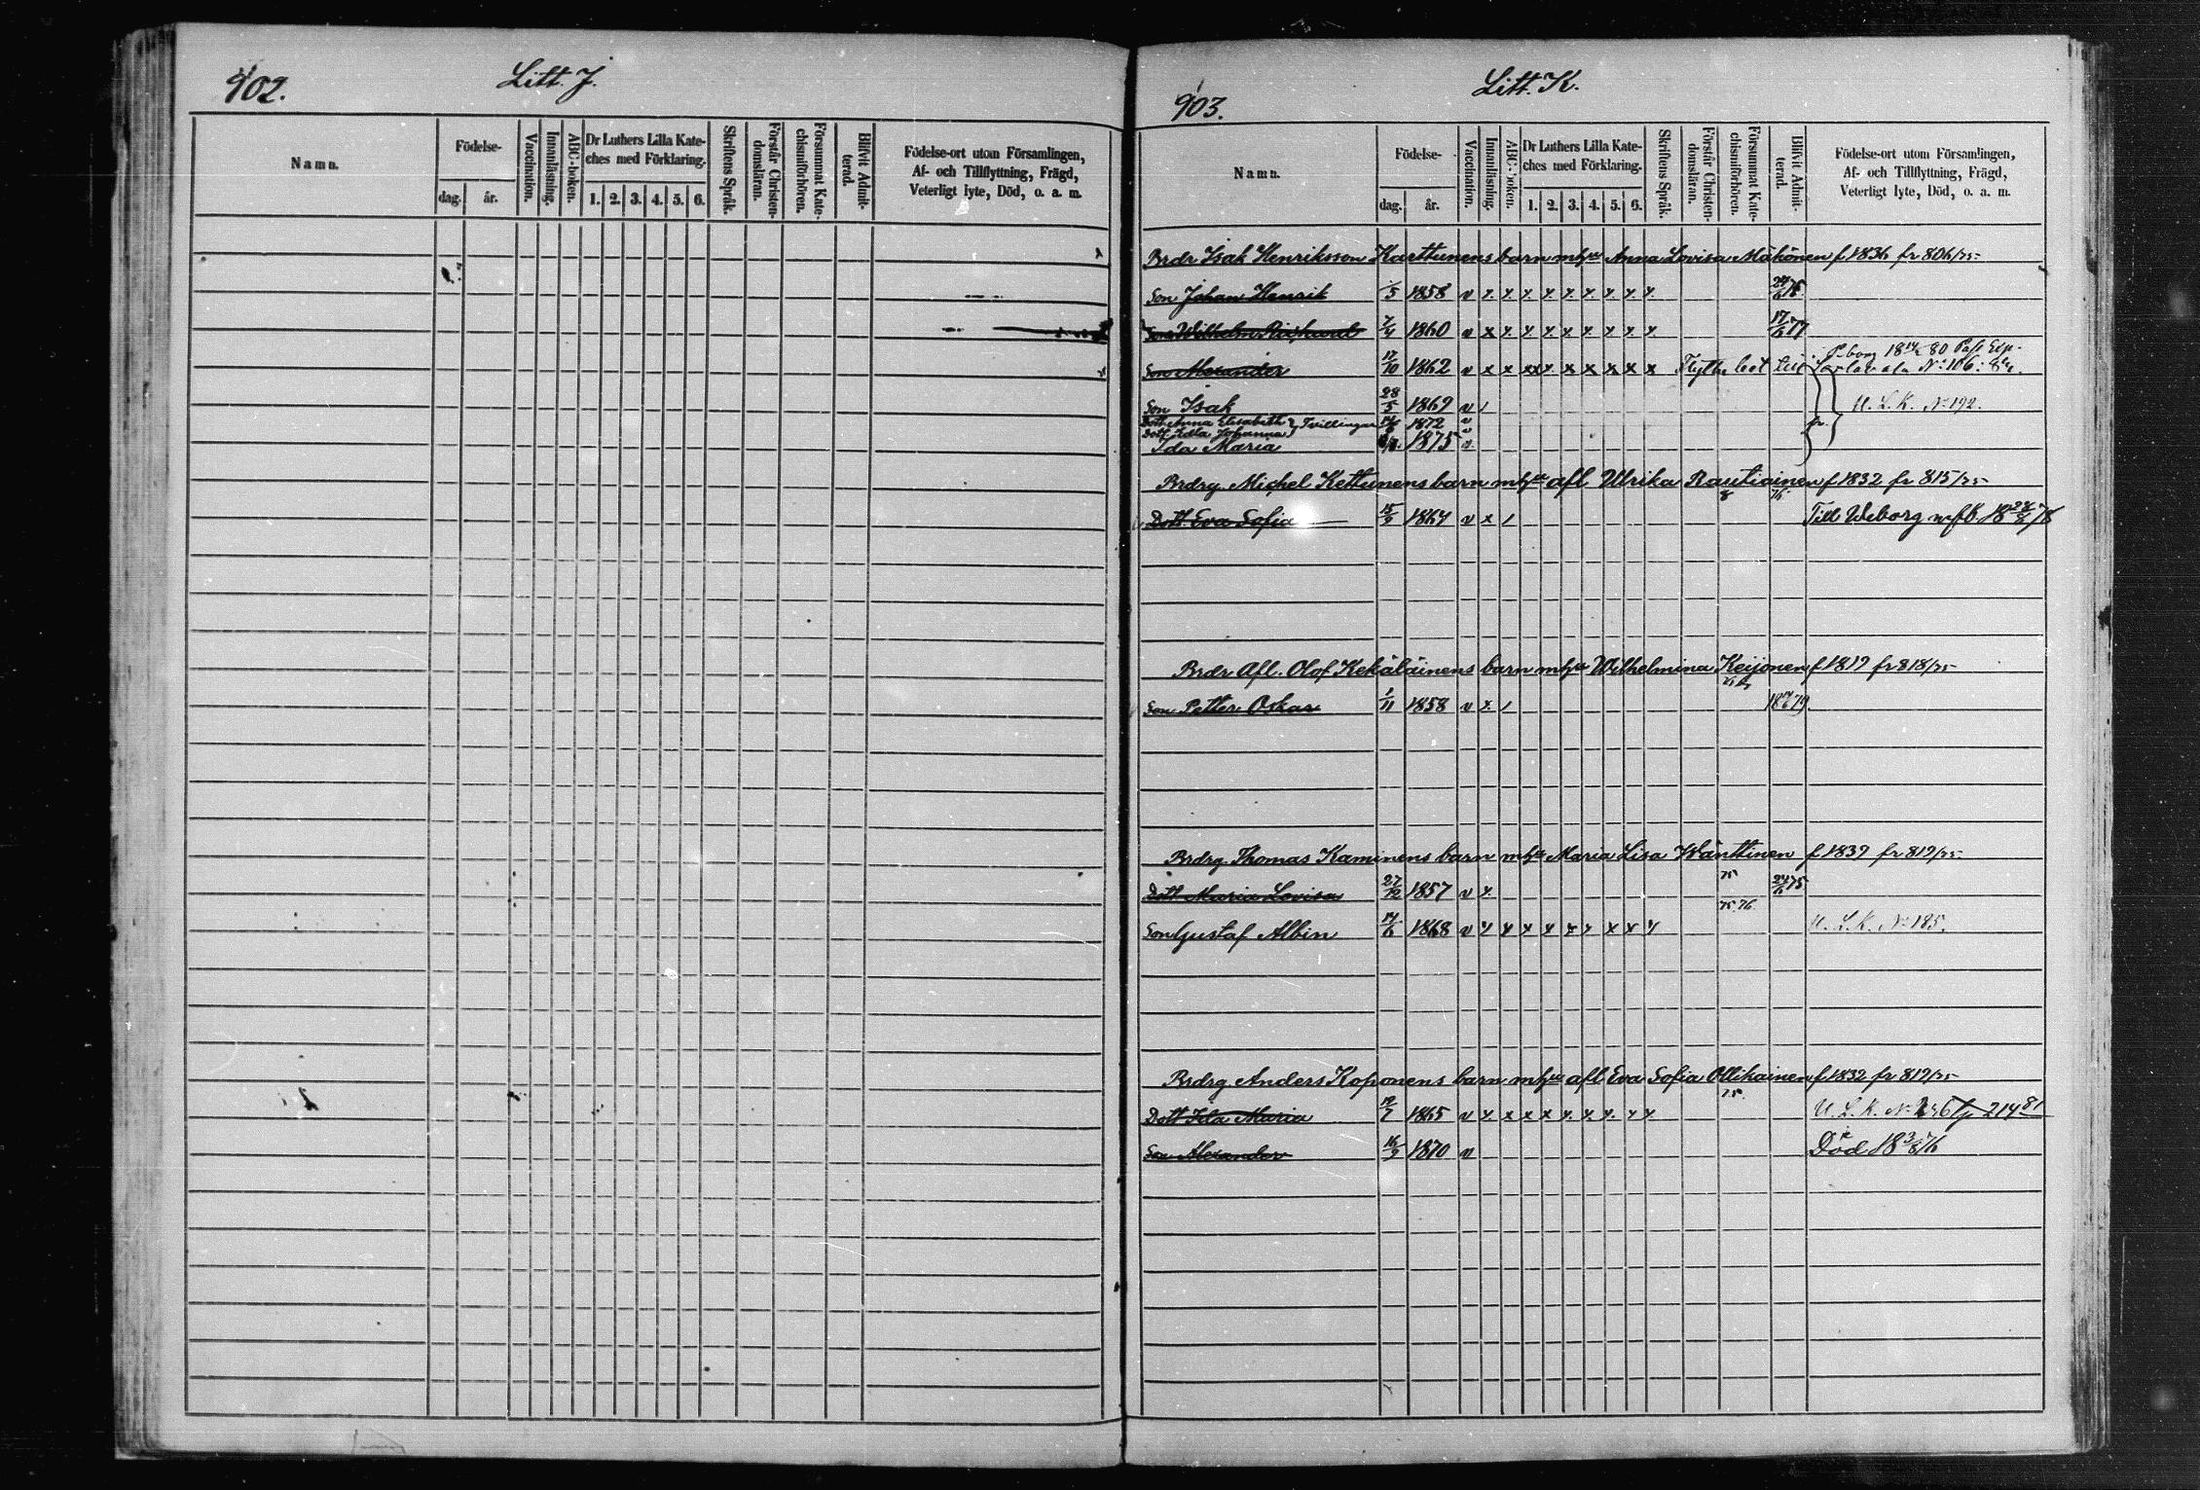 902.
Litt. J.
Namn.
Födelse-
dag.
år.
Vaccination.
Innanläsning.
ABC-boken.
Dr Luthers Lilla Kate-
ches med Förklaring.
1. 2. 3. 4. 5. 6.
Skriftens Språk.
Förstår Christen-
domsläran.
Försummat Kate-
chismiförhören.
Blifvit Admit-
terad.
Födelse-ort utom Församlingen,
Af- och Tillflyttning, Frägd,
Veterligt lyte, Död, o. a. m.
903.
Litt. K.
Namn.
Födelse-
dag.
år.
Vaccination.
Innanläsning.
ABC-boken.
Dr Luthers Lilla Kate-
ches med Förklaring.
1. 2. 3. 4. 5. 6.
Skriftens Språk.
Förstår Christen-
domsläran.
Försummat Kate-
chismiförhören.
Blifvit Admit-
terad.
Födelse-ort utom Församlingen,
Af- och Tillflyttning, Frägd,
Veterligt lyte, Död, o. a. m.
Brdr Isak Henriksson Karttunens barn m hu Anna Lovisa Mähönen f 1836 fr 806/75
Son Johan Henrik /5 1858 v x x x x x x x x x 24/6 76
Son Wilhelm 7/4 1860 v x x x x x x x x x 17/6 77
Son Alexander 17/10 1862 v x x x x x x x x x
P-borg 18 80 Pass
No 106:
Son Isak 28/5 1869 v / U. L. K. No 192.
Dott. Anna Elisabeth } Tvillingar 1872 v
Dott. Edla Johanna v
Ida Maria 1875 v
Brdrg. Michel Kettunens barn m hu afl Ulrika Rautiainen f 1832 fr 815/75
Dott Eva Sofia 15/9 1867 v x / Till Wiborg m fb. 18 78
Brdr Afl. Olof Kekäläinens barn m hu Wilhelmina Keijonen f 1819 fr 818/75
Son Petter Oskar 1/11 1858 v x / 18 79
Brdrg. Thomas Kaminens barn m hu Maria Lisa Wänttinen f 1839 fr 819/75
75
Dott Maria Lovisa 27/12 1857 v x 24/6 75
75. 76.
Son Gustaf Albin 14/6 1868 v x x x x x x x x x U. L. K. No 185.
Brdrg. Anders Koponens barn m hu afl Eva Sofia Ollikainen f 1832 fr 819/75
75.
Dott Ida Maria 19/7 1865 v x x x x x x x x x U. L. K. No 214 81
Son Alexander 16/9 1870 v Död 18 3/8 76